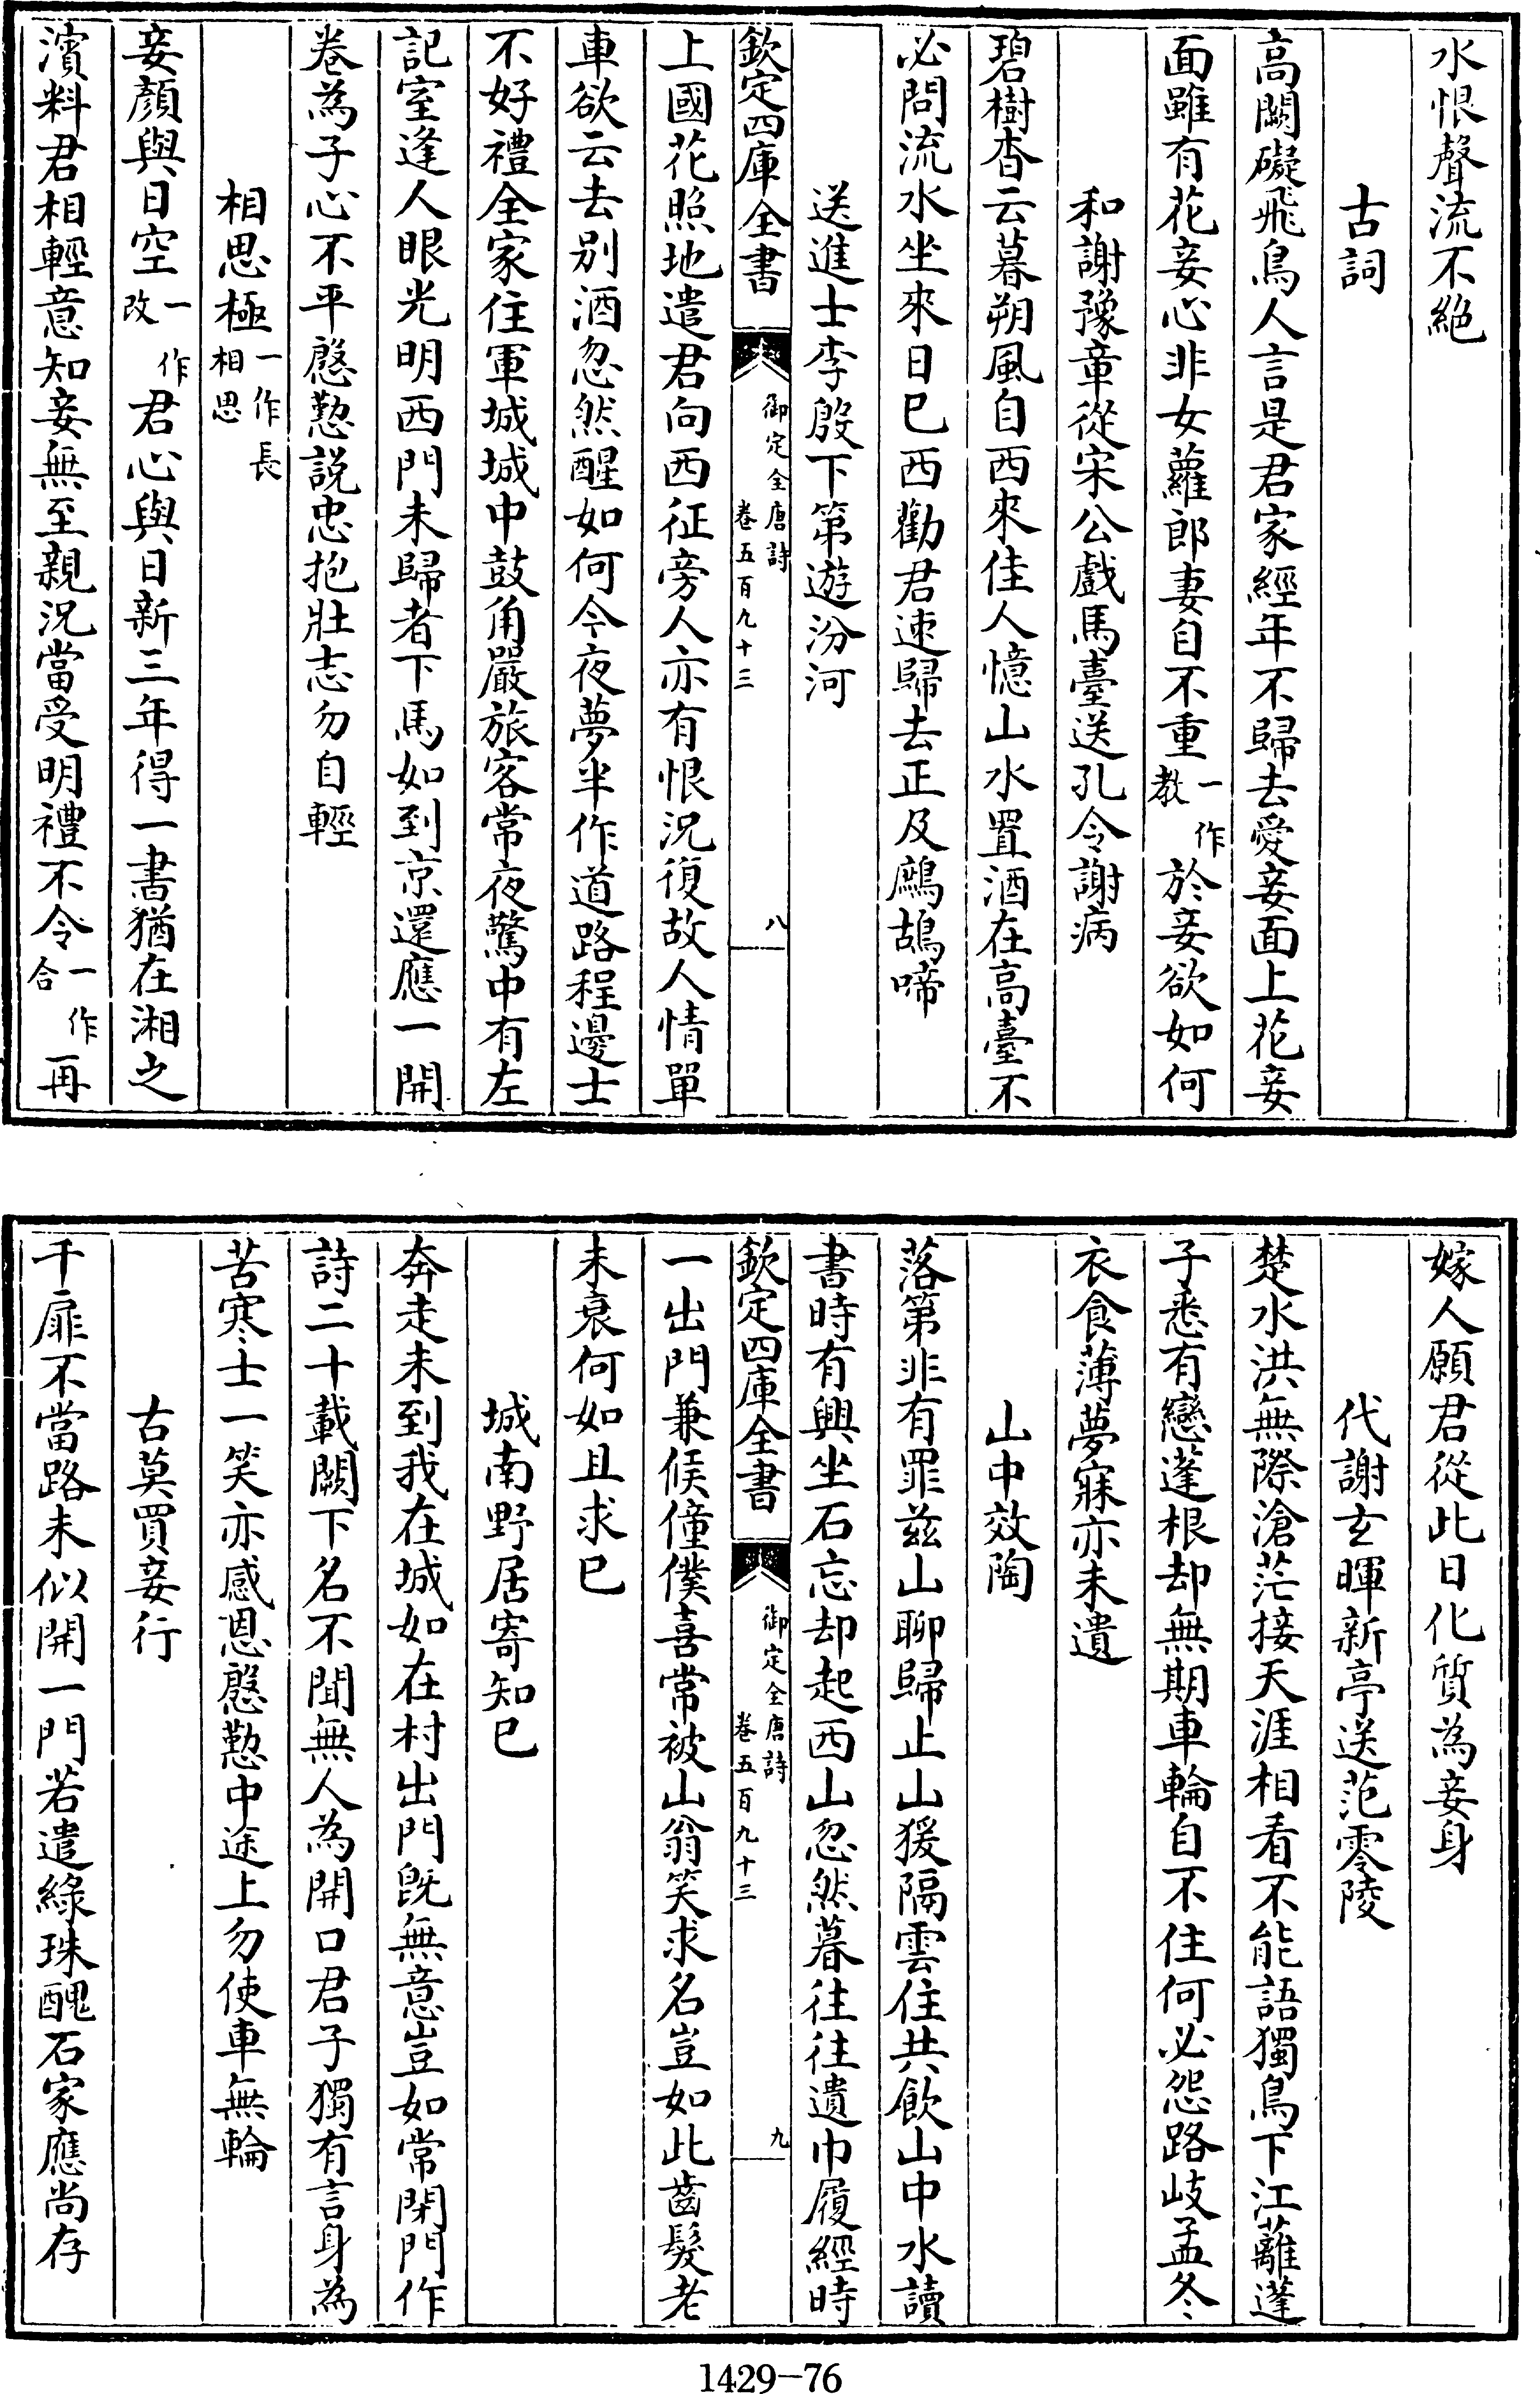 水恨聲流不絕
古詞
高闕礙飛鳥人言是君家經年不歸去愛妾面上花妾
面雖有花妾心非女蘿郎妻自不重一作教於妾欲如何
和謝豫章從宋公戲馬臺送孔令謝病
碧樹杳云暮朔風自西來佳人憶山水置酒在高臺不
必問流水坐來日已西勸君速歸去正及鷓鴣啼
送進士李殷下第遊汾河
欽定四庫全書
御定全唐詩
卷五百九十三
八
上國花照地遣君向西征旁人亦有恨況復故人情單
車欲云去別酒忽然醒如何今夜夢半作道路程邊士
不好禮全家住軍城城中鼓角嚴旅客常夜驚中有左
記室逢人眼光明西門未歸者下馬如到京還應一開
卷為子心不平慇懃說忠抱壯志勿自輕
相思極一作長相思
妾顏與日空一作改君心與日新三年得一書猶在湘之
濱料君相輕意知妾無至親況當受明禮不令一作合再
嫁人願君從此日化質為妾身
代謝玄暉新亭送范零陵
楚水洪無際滄茫接天涯相看不能語獨鳥下江蘺蓬
子悉有戀蓬根却無期車輪自不住何必怨路岐孟冬
衣食薄夢寐亦未遺
山中效陶
落第非有罪茲山聊歸止山猨隔雲住共飲山中水讀
書時有興坐石忘却起西山忽然暮往往遺巾履經時
欽定四庫全書
御定全唐詩
卷五百九十三
九
一出門兼候僮僕喜常被山翁笑求名豈如此齒髮老
未衰何如且求已
城南野居寄知已
奔走未到我在城如在村出門旣無意豈如常閉門作
詩二十載闕下名不聞無人為開口君子獨有言身為
苦寒士一笑亦感恩慇懃中途上勿使車無輪
古莫買妾行
千扉不當路未似開一門若遣綠珠醜石家應尚存
1429-76